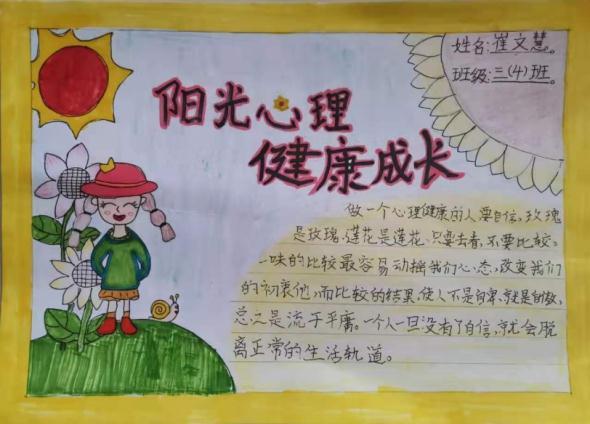 姓名:崔文慧。
班级:三(4)班。
阳光心理
健康成长
做一个心理健康的人要自信,玫瑰
是玫瑰,莲花是莲花,只要去看,不要比较。
一味的比较最容易动摇我们心态,改变我们
的初衷他,而比较的结果,使人不是自卑,就是自傲,
总之是流于平庸。一个人一旦没有了自信,就会脱
离正常的生活轨道。